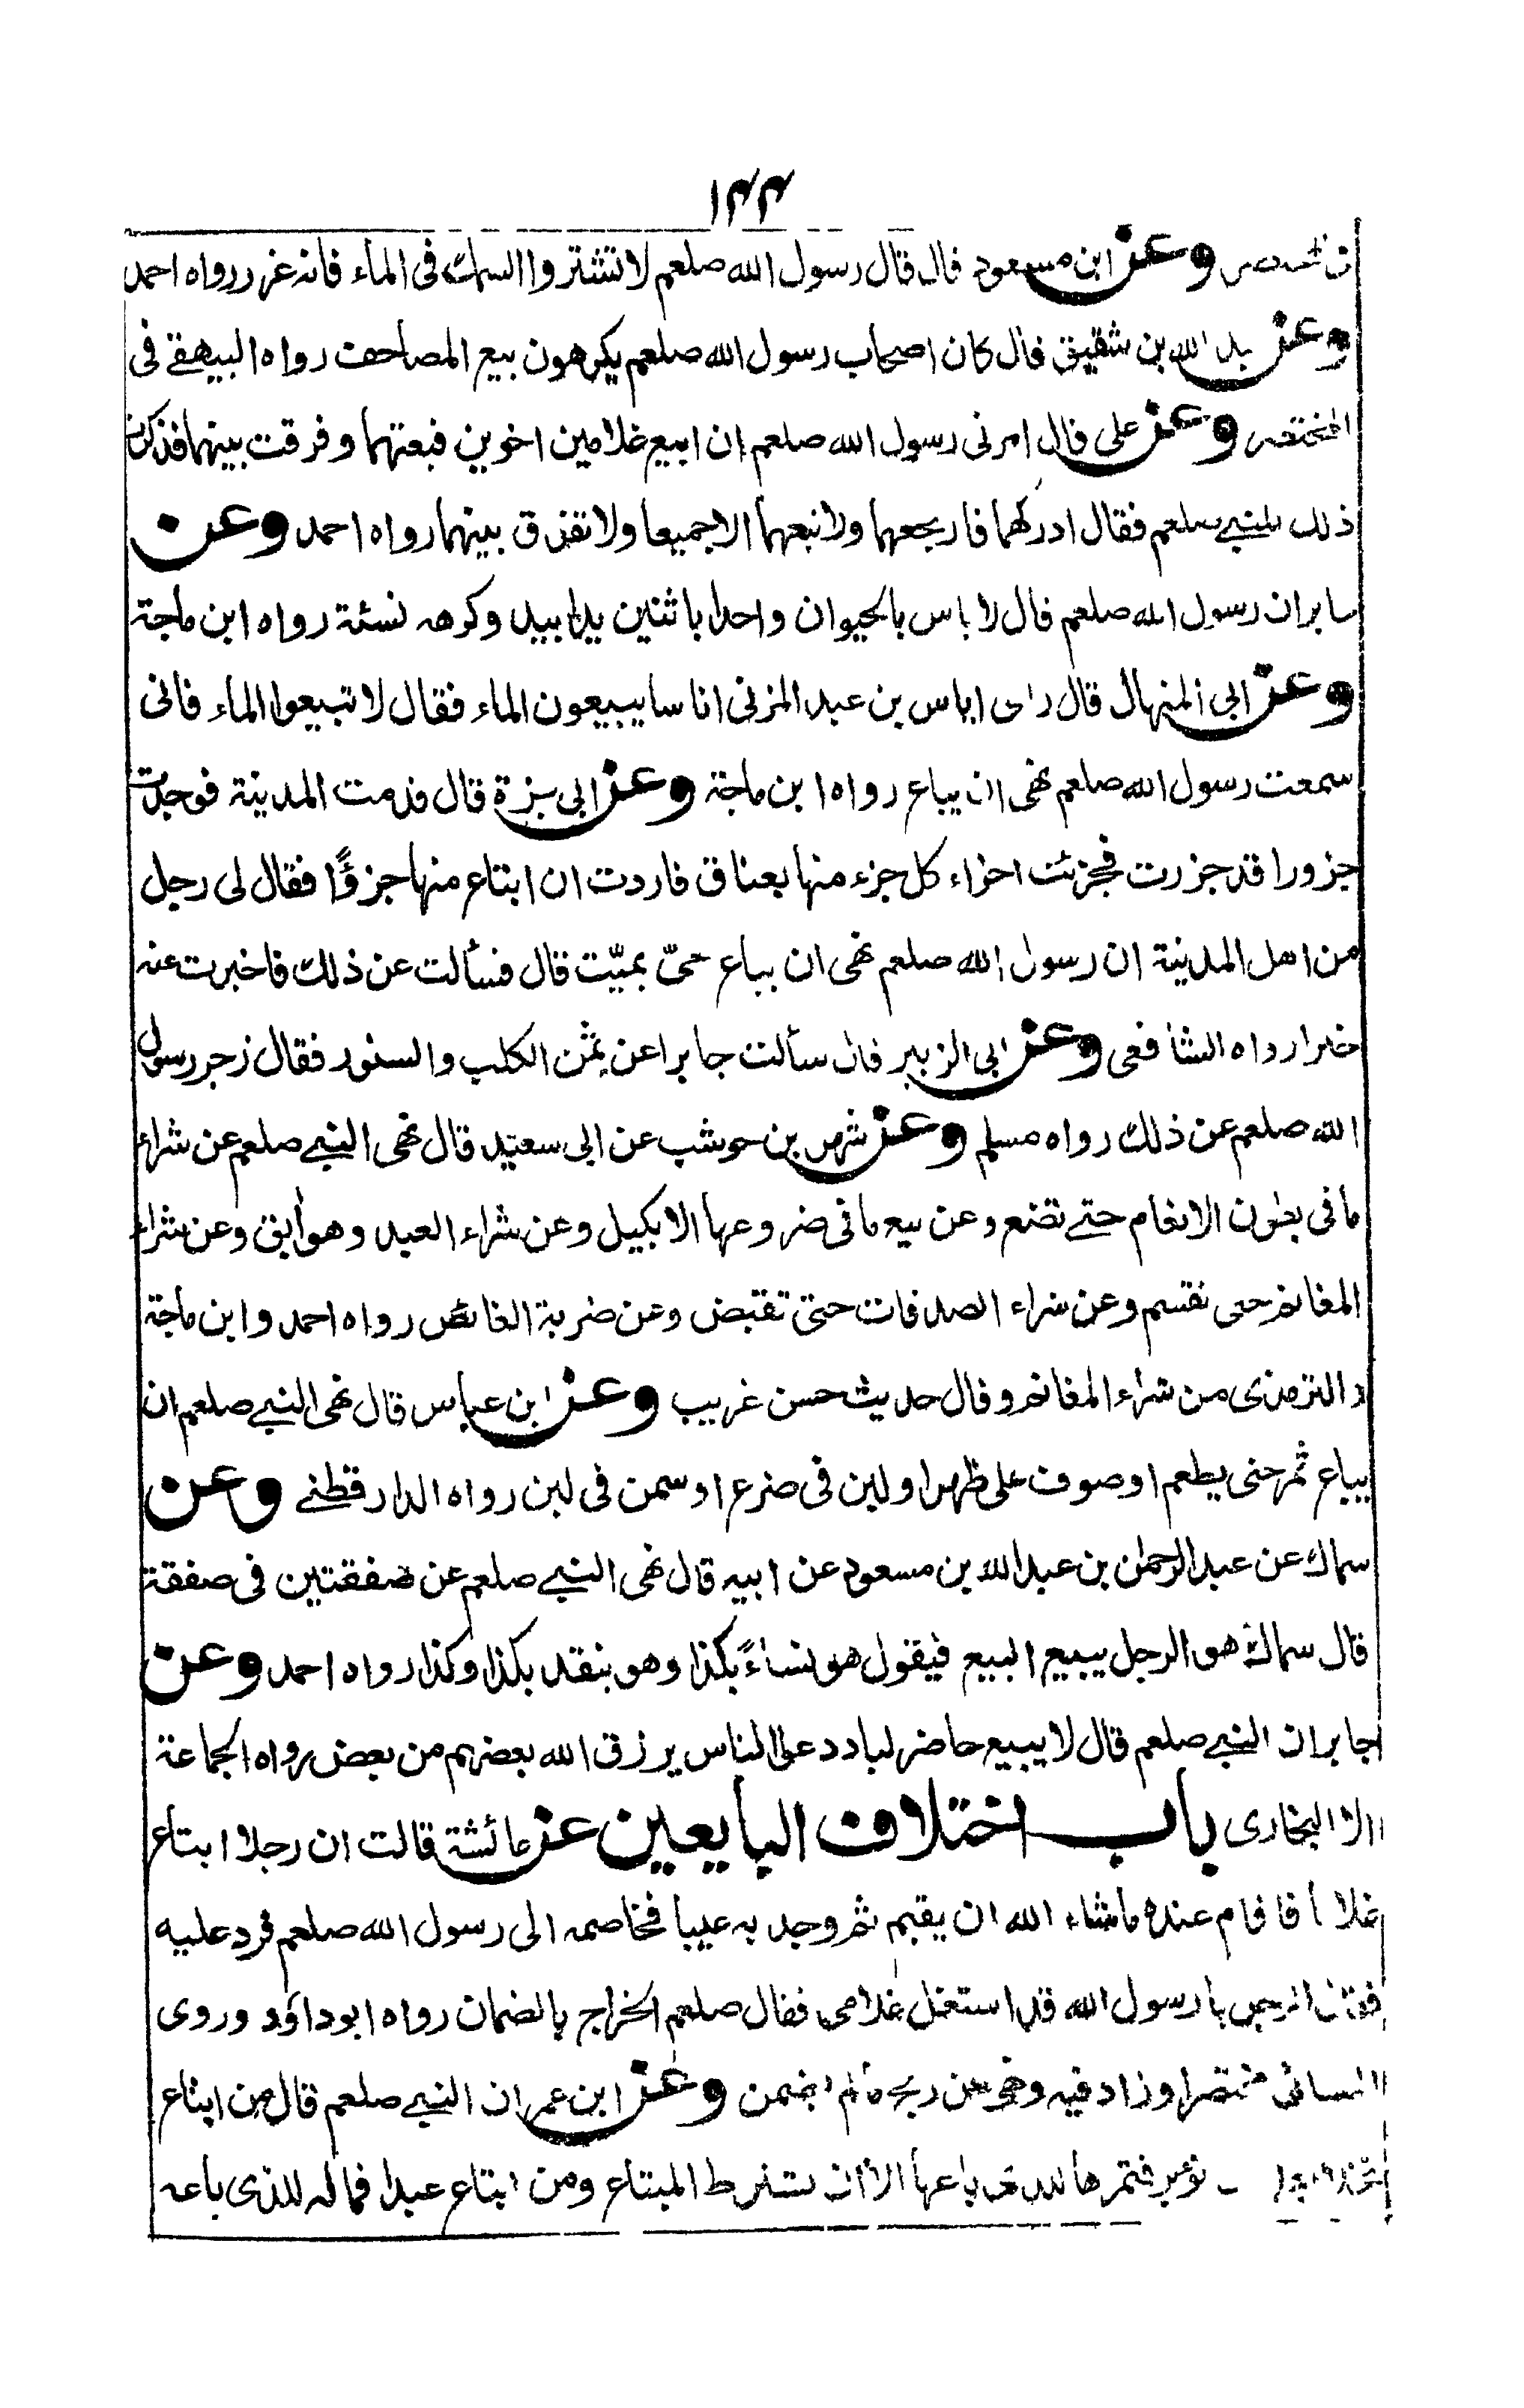 ۱۴۴
وعن ابن مسعود قال قال رسول الله صلعم لا تشتروا السمك فى الماء فانه غرر رواه احمد
وعن عبد الله بن شقيق قال كان اصحاب رسول الله صلعم يكرهون بيع المصاحف رواه البيهقے فى
المختصر وعن على قال امرنى رسول الله صلعم ان ابيع غلامين اخوين فبعتهما وفرقت بينهما فذكرت
ذلك للنبے صلعم فقال ادركهما فارجعهما ولا تبعهما الا جميعا ولا تفرق بينهما رواه احمد وعن
جابر ان رسول الله صلعم قال لا باس بالحيوان واحدا باثنين يدا بيد وكرهه نسئة رواه ابن ماجة
وعن ابى المنهال قال راى اياس بن عبد المزنى اناسا يبيعون الماء فقال لا تبيعوا الماء فانى
سمعت رسول الله صلعم نهى ان يباع رواه ابن ماجة وعن ابى بزة قال قدمت المدينة فوجدت
جزورا قد جزرت فجزئت اجزاء كل جزء منها بعناق فاردت ان ابتاع منها جزؤًا فقال لى رجل
من اهل المدينة ان رسول الله صلعم نهى ان يباع حىّ بميّت قال فسألت عن ذلك فاخبرت عنه
خيرا رواه الشافعى وعن ابى الزبير قال سألت جابرا عن ثمن الكلب والسنور فقال زجر رسول
الله صلعم عن ذلك رواه مسلم وعن شهر بن حوشب عن ابى سعيد قال نهى النبے صلعم عن شراء
ما فى بطون الانعام حتے تضع وعن بيع ما فى ضروعها الا بكيل وعن شراء العبد وهو اٰبق وعن شراء
المغانم حتى تقسم وعن شراء الصدقات حتى تقبض وعن ضربة الغائص رواه احمد وابن ماجة
والترمذى من شراء المغانم وقال حديث حسن غريب وعن ابن عباس قال نهى النبے صلعم ان
يباع ثمر حتى يطعم او صوف على ظهر او لبن فى ضرع او سمن فى لبن رواه الدارقطنے وعن
سماك عن عبد الرحمٰن بن عبد الله بن مسعود عن ابيه قال نهى النبے صلعم عن صفقتين فى صفقة
قال سماك هو الرجل يبيع البيع فيقول هو نساءً بكذا وهو بنقد بكذا وكذا رواه احمد وعن
جابر ان النبے صلعم قال لا يبيع حاضر لباد دعوا الناس يرزق الله بعضهم من بعض رواه الجماعة
الا البخارى باب اختلاف البايعين عن عائشة قالت ان رجلا ابتاع
غلاما فاقام عنده ماشاء الله ان يقيم ثم وجد به عيبا فخاصمه الى رسول الله صلعم فرد عليه
فقال الرجل يا رسول الله قد استغل غلامى فقال صلعم الخراج بالضمان رواه ابو داؤد وروى
النسائى مختصرا وزاد فيه ونهى عن ربح ما لم يضمن وعن ابن عمر ان النبے صلعم قال من ابتاع
نخلا بعد ان توبر فثمرها للذى باعها الا ان يشترط المبتاع ومن ابتاع عبدا فماله للذى باعه